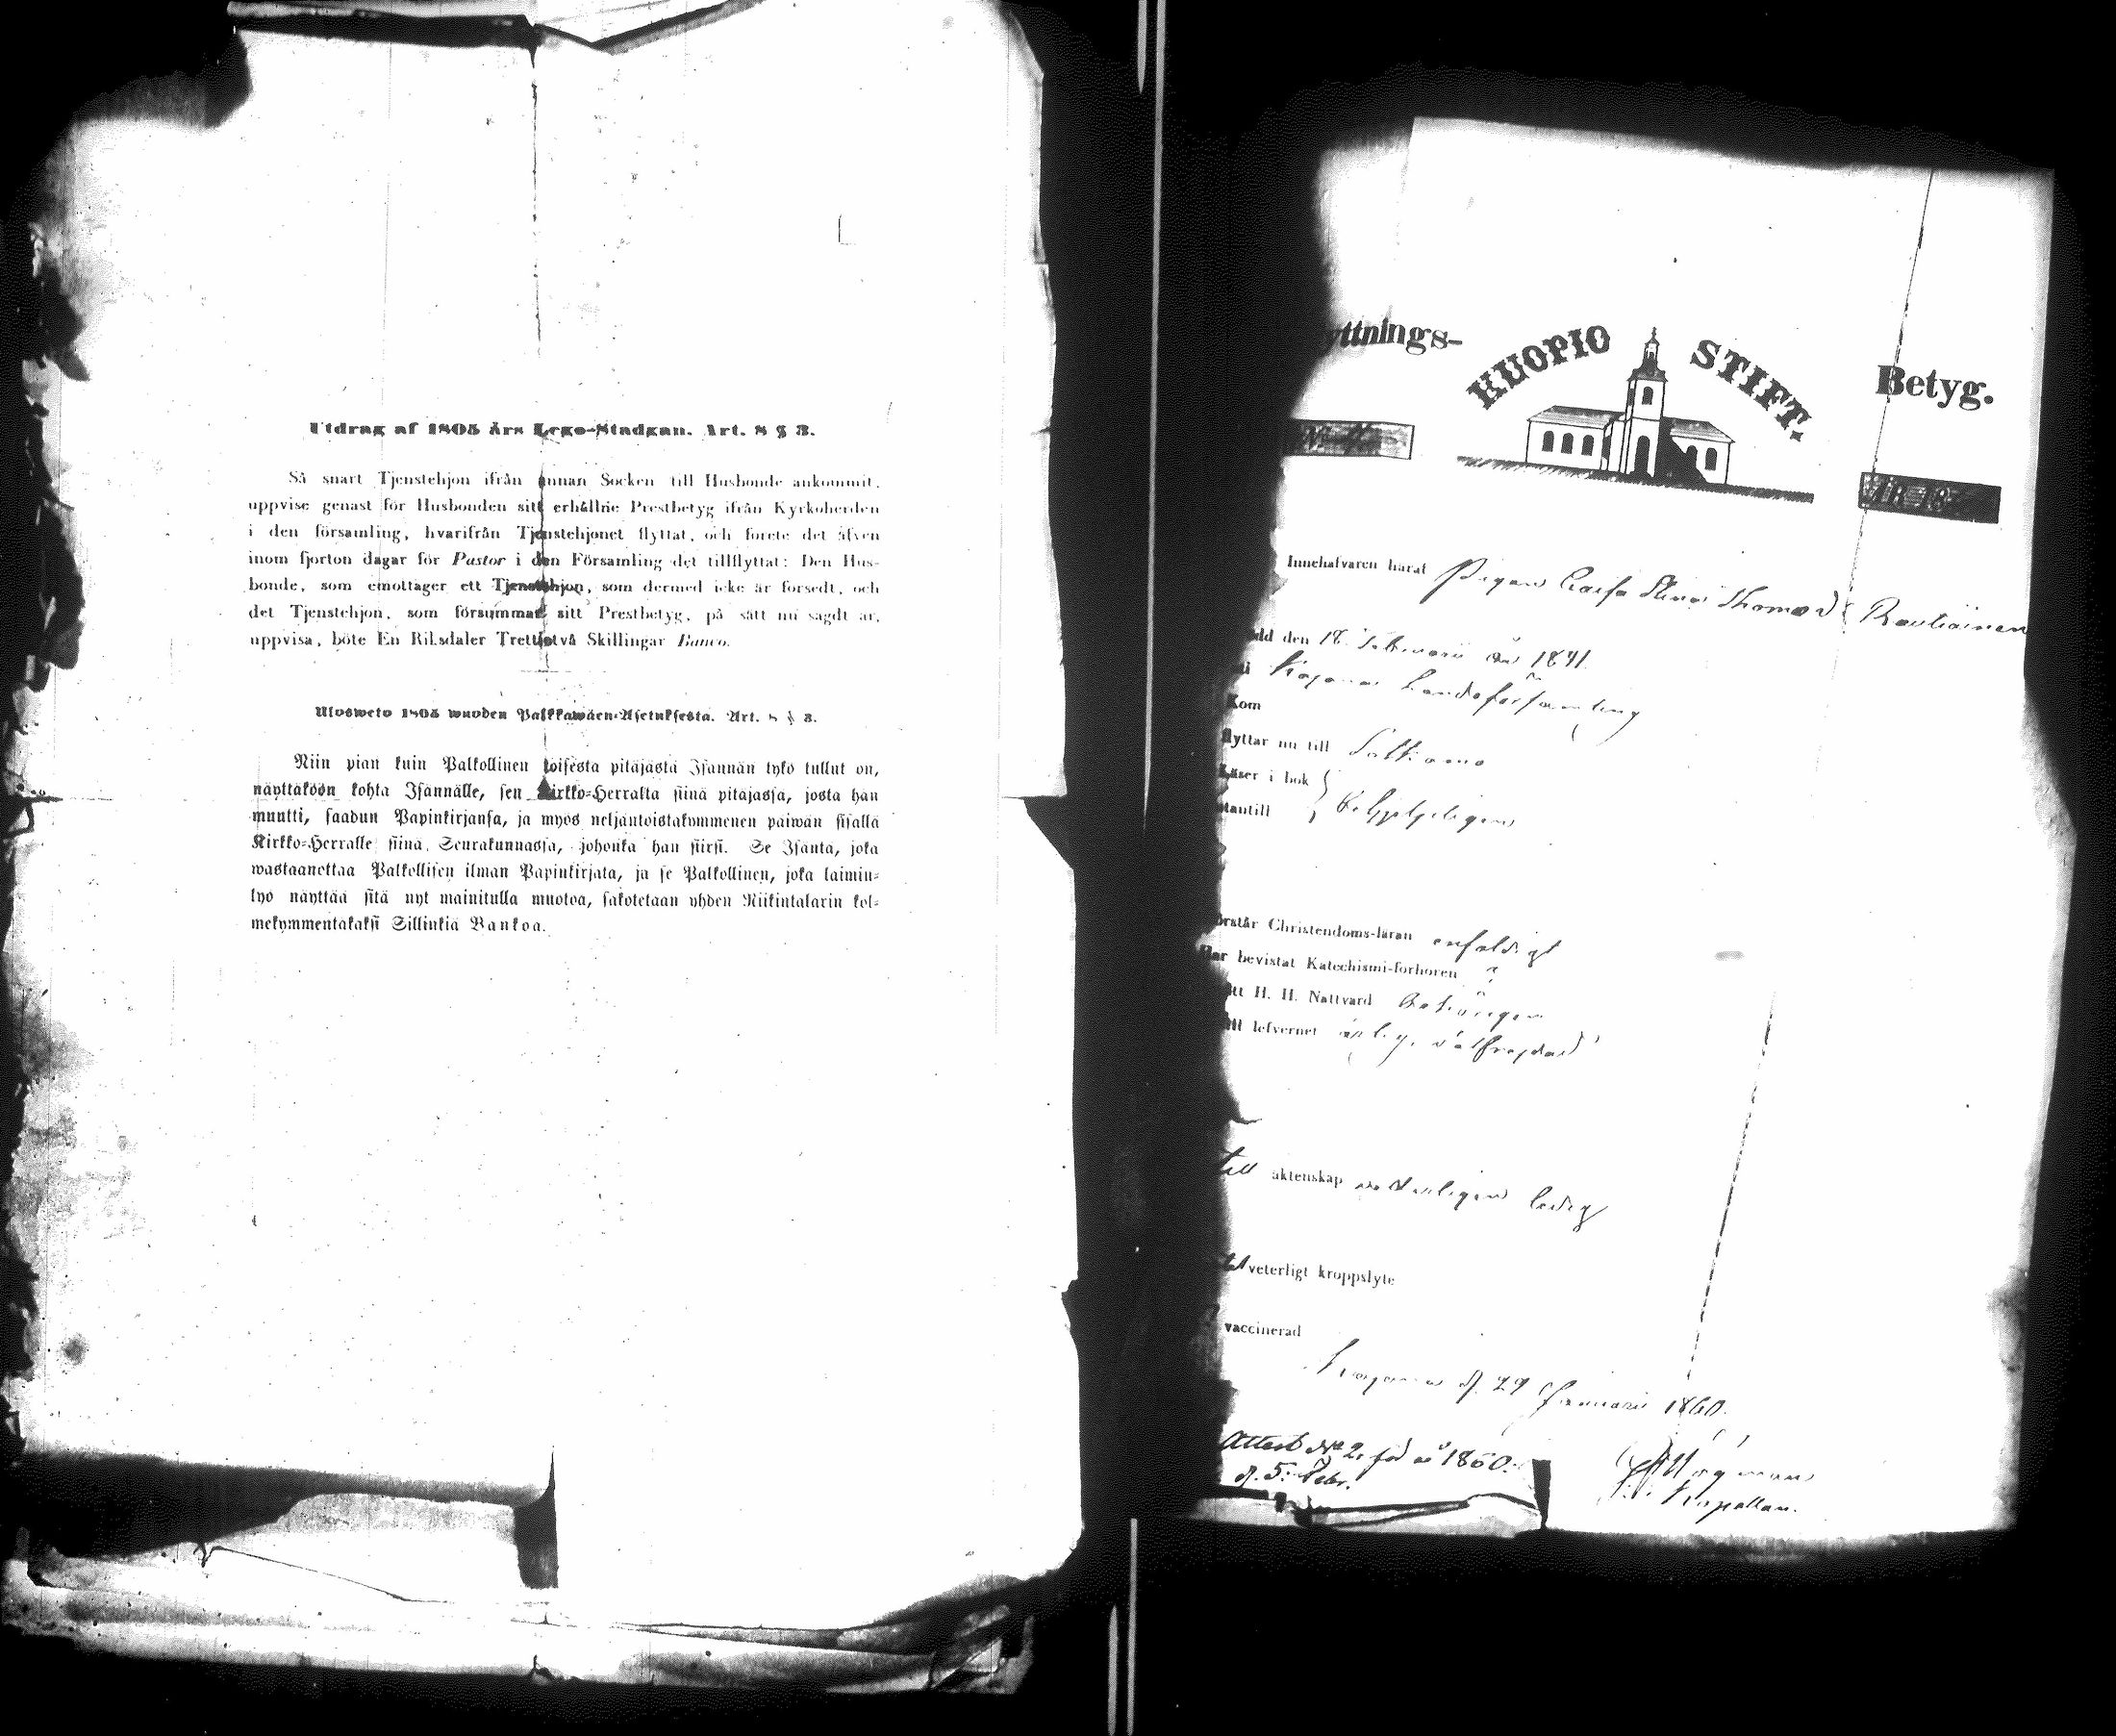 Utdrag af 1805 års Lego-Stadgan. Art. 8 § 3.
Så snart Tjenstehjon ifrån annan Socken till Husbonde ankommit,
uppvise genast för Husbonden sitt erhållne Prestbetyg ifrån Kyrkoherden
i den församling, hvarifrån Tjenstehjonet flyttat, och förete det äfven
inom fjorton dagar för Pastor i den Församling det tillflyttat: Den Hus-
bonde, som emottager ett Tjenstehjon, som dermed icke är försedt, och
det Tjenstehjon, som försummat sitt Prestbetyg, på sätt nu sagdt är,
uppvisa, böte En Riksdaler Trettiotvå Skillingar Banco.
Ulosweto 1805 wuoden Palkkawäen-Asetuksesta. Art. 8 § 3.
Niin pian kuin Palkollinen toisesta pitäjästä Isännän tykö tullut on,
näyttäköön kohta Isännälle, sen Kirkko-Herralta siinä pitäjässä, josta hän
muutti, saadun Papinkirjansa, ja myös neljäntoistakymmenen päiwän sisällä
Kirkko-Herralle siinä Seurakunnassa, johonka hän siirsi. Se Isäntä, joka
wastaanottaa Palkollisen ilman Papinkirjata, ja se Palkollinen, joka laimin-
lyö näyttää sitä nyt mainitulla muotoa, sakotetaan yhden Riikintalarin kol-
mekymmentäkaksi Sillinkiä Bankoa.
yttnings- KUOPIO STIFT. Betyg.
Innehafvaren häraf Pigan Caisa Stina Thomæd Rautiainen
dd den 18 Februarii år 1841.
i Kajana Landsförsamling
Kom
flyttar nu till Sotkamo
Läser i bok
utantill
örstår Christendoms-läran enfaldigt
Har bevistat Katechismi-förhören
tt H. H. Nattvard behörigen
ill lefvernet ärlig, välfrejdad
Till äktenskap vetterligen ledig
veterligt kroppslyte
vaccinerad
Kajana d. 29 Januarii 1860.
Attest No 2, för år 1860.
d. 5. Febr.
Kapellan.